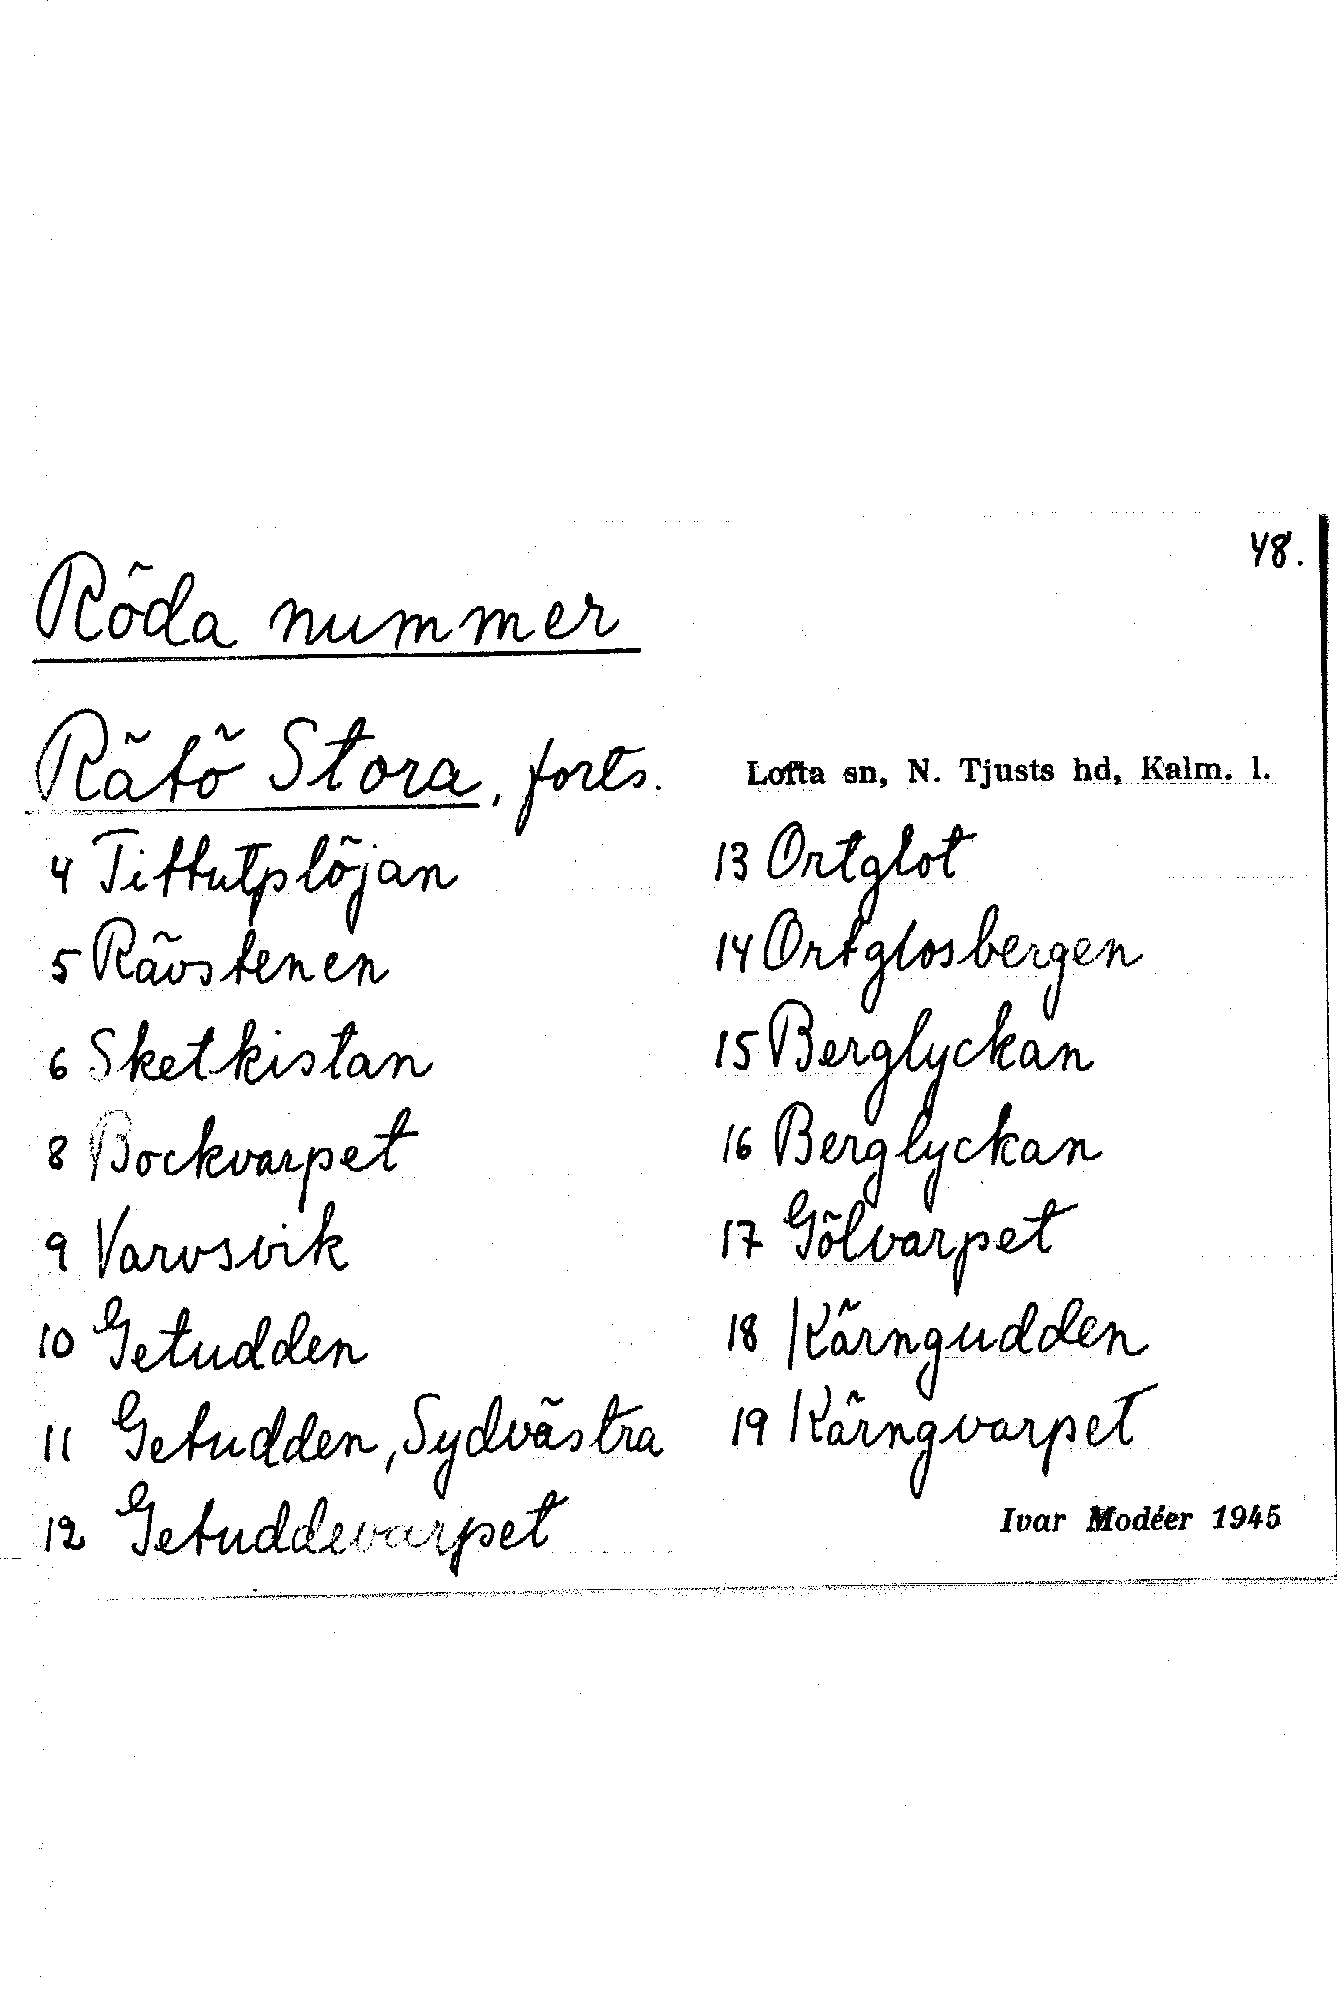 48.
Röda nummer
Rätö Stora, forts.
Lofta sn, N. Tjusts hd, Kalm. l.
4 Tittutplöjan
5 Rävstenen
6 Sketkistan
8 Bockvarpet
9 Varvsvik
10 Getudden
11 Getudden, Sydvästra
12 Getuddevarpet
13 Ortglot
14 Ortglosbergen
15 Berglyckan
16 Berglyckan
17 Gölvarpet
18 Kärngudden
19 Kärngvarpet
Ivar Modéer 1945